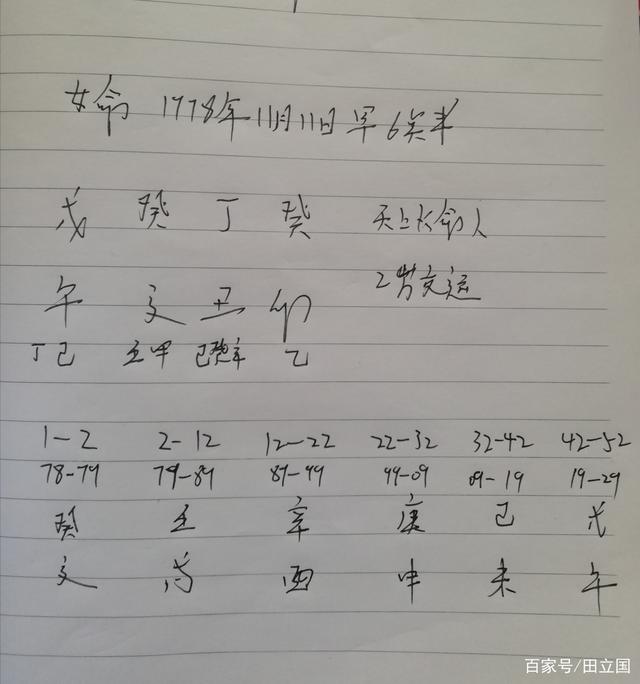 女命 1978年11月11日早6点半
戊 癸 丁 癸 天上火命人
午 亥 丑 卯 2岁交运
丁己 壬甲 己癸辛 乙
1-2 2-12 12-22 22-32 32-42 42-52
78-79 79-89 89-99 99-09 09-19 19-29
癸 壬 辛 庚 己 戊
亥 戌 酉 申 未 午
百家号/田立国